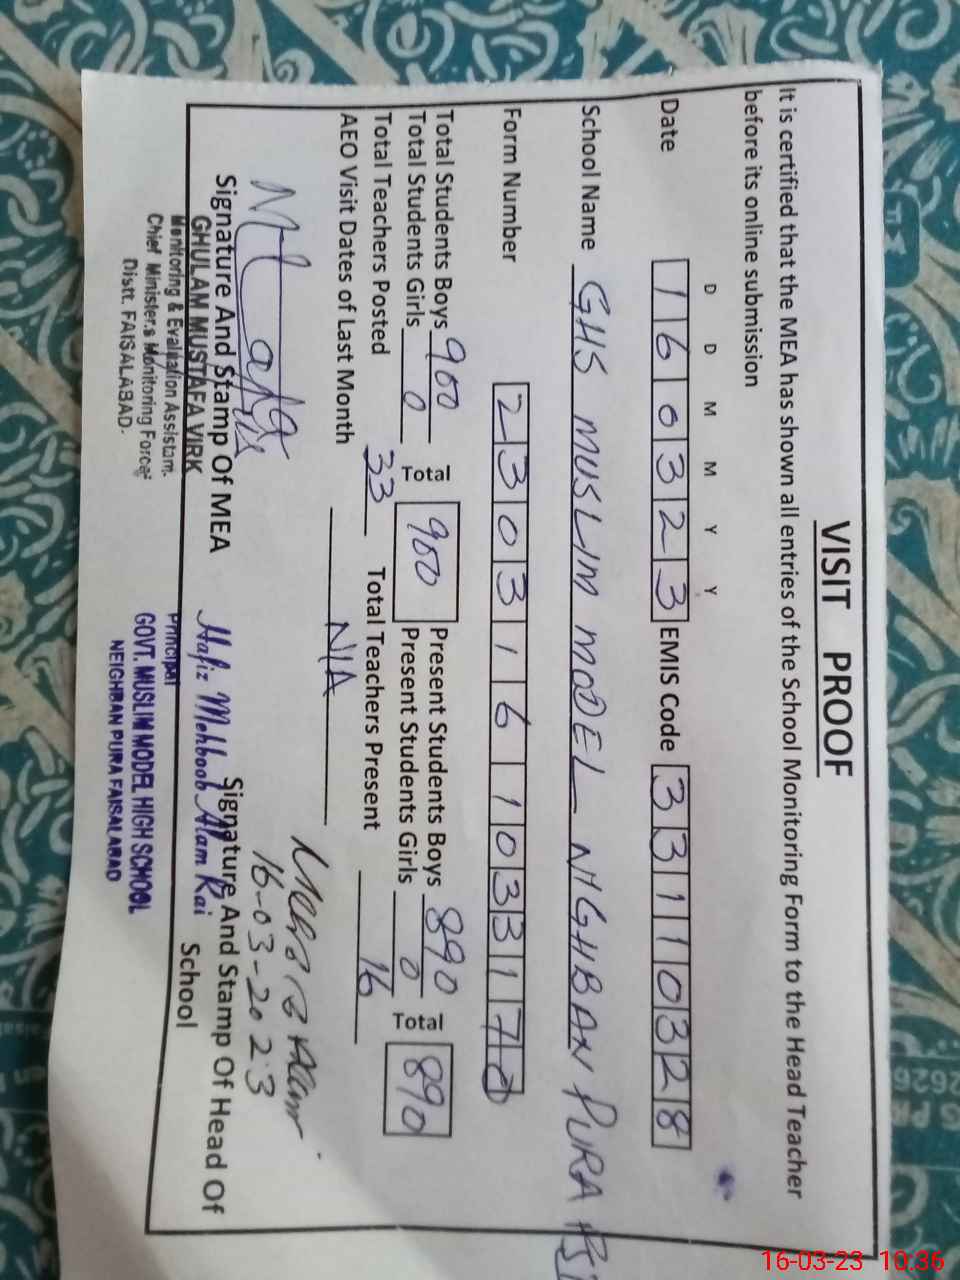 VISIT PROOF
It is certified that the MEA has shown all entries of the School Monitoring Form to the Head Teacher
before its online submission
D D M M Y Y
Date 160323 EMIS Code 33110328
School Name GHS MUSLIM MODEL NIGHBAN PURA
Form Number 2303161033170
Total Students Boys 900 Total 900 Present Students Boys 890 Total 890
Total Students Girls 0 Present Students Girls 0
Total Teachers Posted 33 Total Teachers Present 16
AEO Visit Dates of Last Month N/A
16-03-2023
Signature And Stamp Of MEA Signature And Stamp Of Head Of
School
GHULAM MUSTAFA VIRK
Monitoring & Evaluation Assistant.
Chief Minister,s Monitoring Force
Distt. FAISALABAD.
Hafiz Mehboob Alam Rai
Principal
GOVT. MUSLIM MODEL HIGH SCHOOL
NEIGHBAN PURA FAISALABAD
16-03-23 10:36